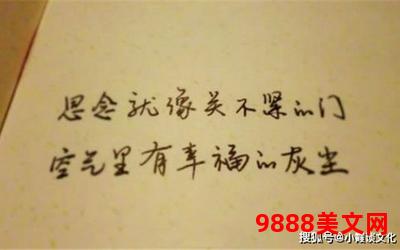 思念就像关不紧的门
空气里有幸福的灰尘
9888美文网
搜狐号@小霞谈文化